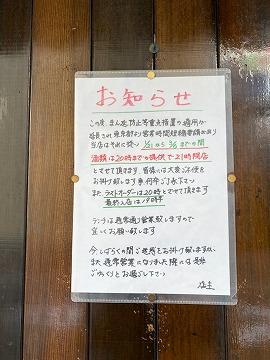 お知らせ
この度、まん延防止等重点措置の適用が
延長され東京都より営業時間短縮要請があり
当店はそれに従い 1/21から3/6までの間
酒類は20時までの提供で21時閉店
とさせて頂きます。皆様には大変ご不便を
お掛け致しますが何卒ご了承下さい
また、ラストオーダーは20時とさせて頂きます
最終入店は19時半
ランチは通常通り営業致しますので
宜しくお願い致します
今しばらくの間ご迷惑をお掛け致しますが、
また通常営業になりました際には是非
ごゆっくりとお過ごし下さい
店主